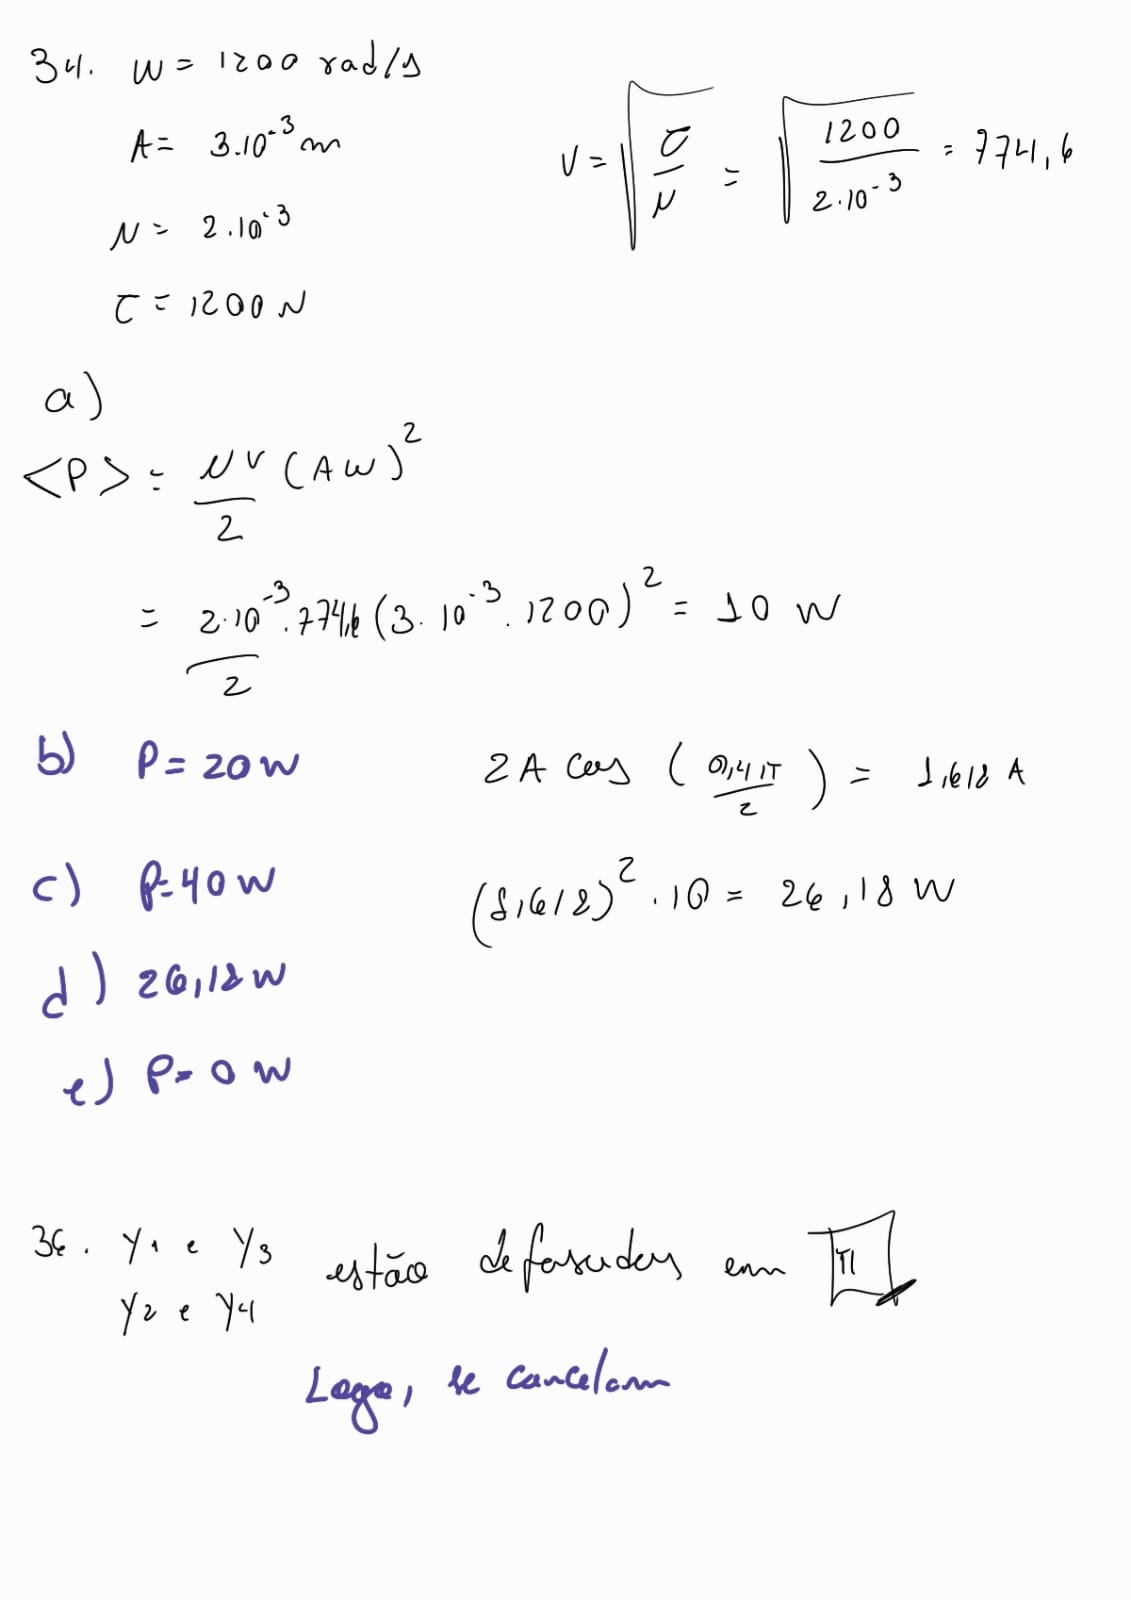 34. W = 1200 rad/s
A = 3.10⁻³ m
μ = 2.10⁻³
τ = 1200 N
V = √(τ/μ) = √(1200/2.10⁻³) = 774,6
a)
<P> = μv/2 (AW)²
= 2.10⁻³.774,6/2 (3.10⁻³.1200)² = 10 W
b) P = 20 W
2A cos (0,4π/2) = 1,618 A
c) P = 40 W
(1,618)².10 = 26,18 W
d) 26,18 W
e) P = 0 W
36. Y1 e Y3
Y2 e Y4
estão defasadas em π
Logo, se cancelam